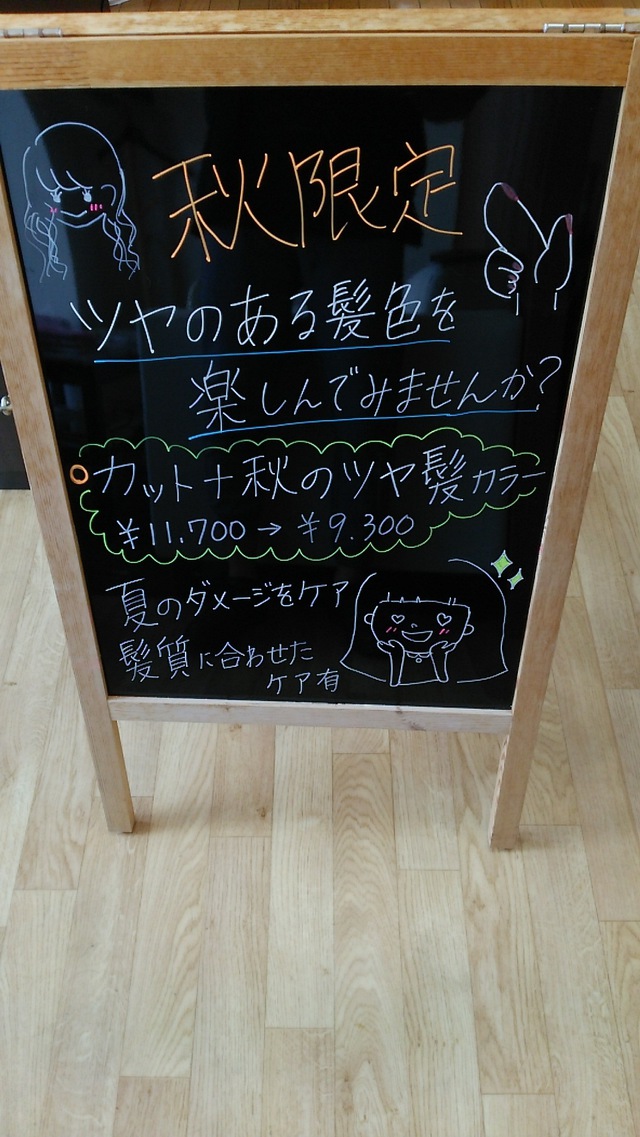 秋限定
ツヤのある髪色を
楽しんでみませんか?
カット+秋のツヤ髪カラー
¥11.700→¥9.300
夏のダメージをケア
髪質に合わせた
ケア有